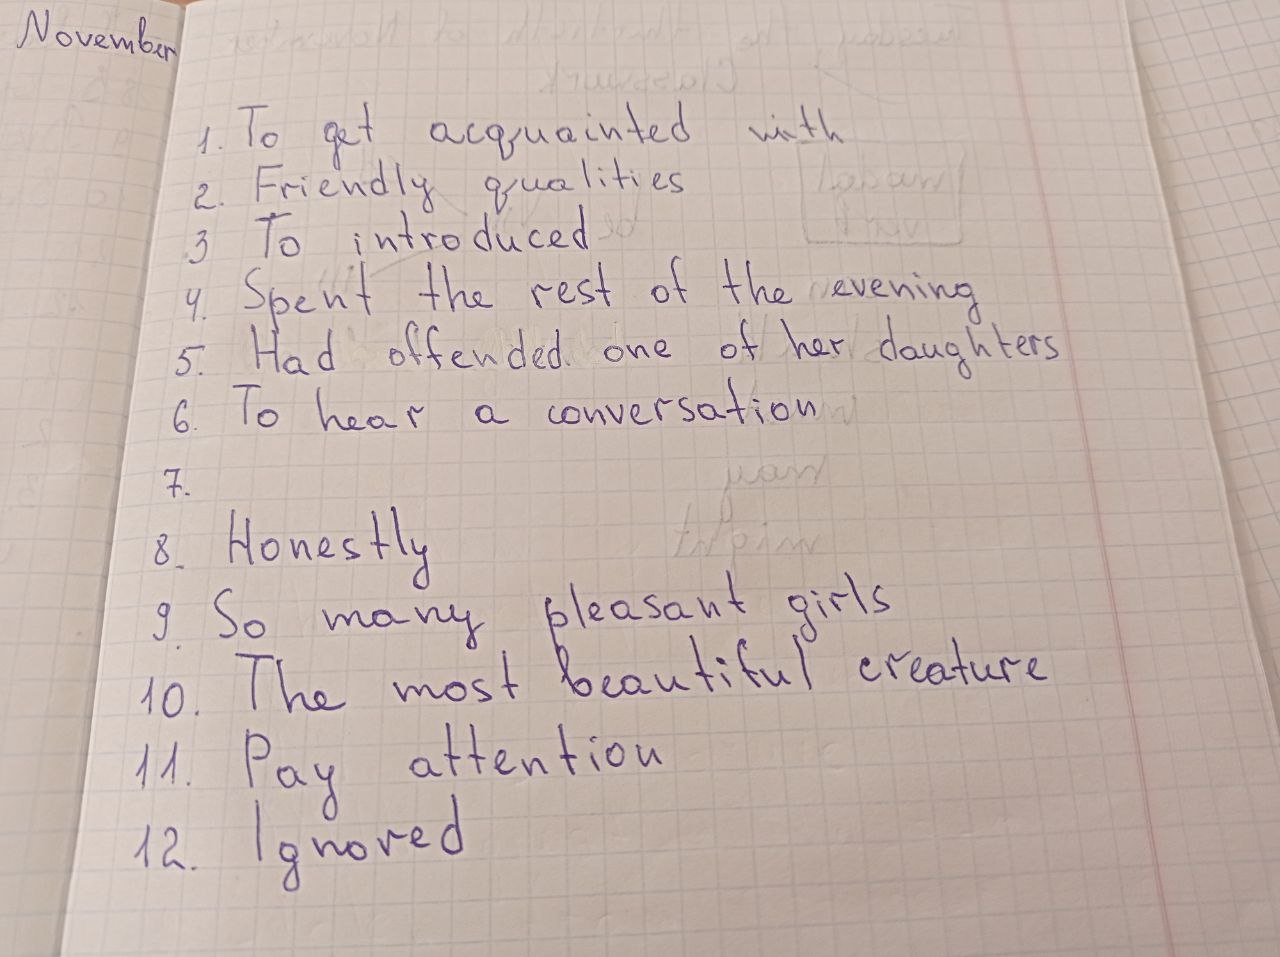 November
1. To get acquainted with
2. Friendly qualities
3 To introduced
4. Spent the rest of the evening
5. Had offended one of her daughters
6. To hear a conversation
7.
8. Honestly
9. So many pleasant girls
10. The most beautiful creature
11. Pay attention
12. Ignored